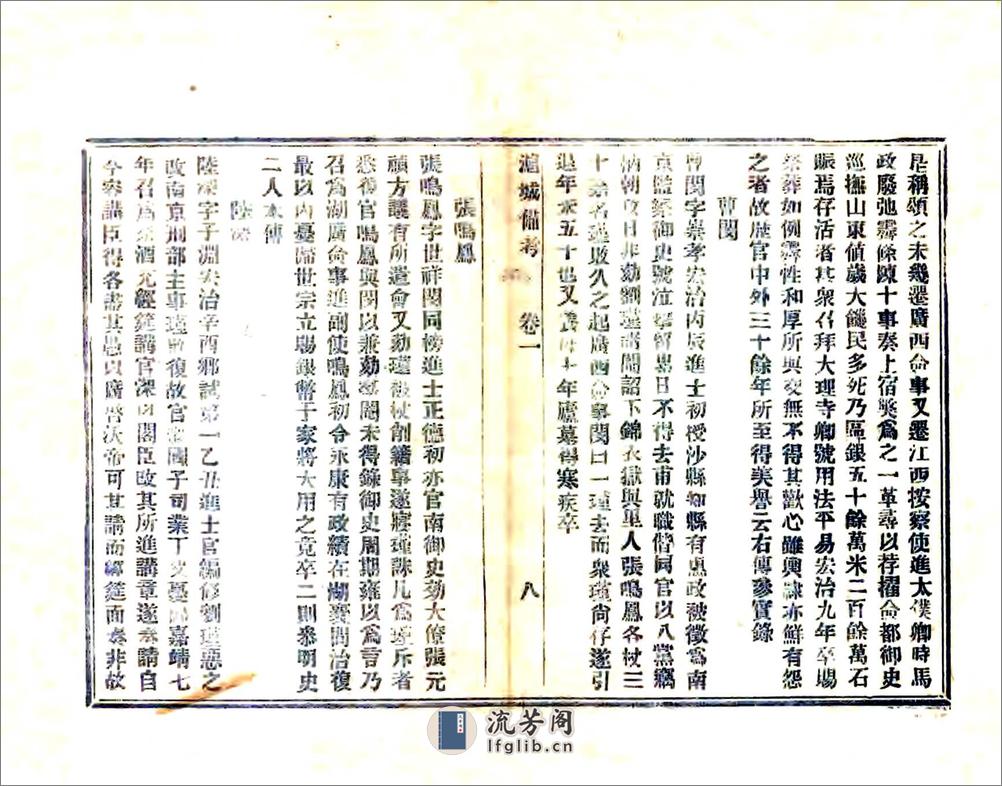 是稱頌之未幾遷廣西僉事又遷江西按察使進太僕卿時馬
政廢弛霽條陳十事奏上宿獘爲之一革尋以荐擢僉都御史
巡撫山東値歲大饑民多死乃區銀五十餘萬米二百餘萬石
賑焉存活者甚衆召拜大理寺卿號用法平易弘治九年卒賜
祭葬如例霽性和厚所與交無不得其歡心雖輿隷亦鮮有怨
之者故歷官中外三十餘年所至得美譽云右傳參實錄
曹閔
曹閔字崇孝弘治丙辰進士初授沙縣知縣有惠政被徵爲南
京監察御史號泣 留累日不得去甫就職偕同官以八黨竊
柄朝政日非劾劉瑾 閽詔下錦衣獄與里人張鳴鳳各杖三
十 名瑾敗久之起廣西僉事閔曰一瑾去而衆瑾尙存遂引
退年未五十也又 十年廬墓得寒疾卒
滬城備考 卷一 八
張鳴鳳
張鳴鳳字世祥閔同榜進士正德初亦官南御史劾大僚張元
禎方讞有所 會又劾瑾被杖削籍 遂 瑾誅凡爲 斥者
悉復官鳴鳳與閔以兼劾 閣未得錄御史周期雍以爲言乃
召爲湖廣僉事進副使鳴鳳初令永康有政績在湖襄間治復
最以內憂歸世宗立賜銀幣于家將大用之竟卒二則參明史
二人本傳
陸深
陸深字子淵弘治辛酉鄉試第一乙丑進士官編修劉瑾惡之
改南京刑部主事瑾誅復故官 國子司業丁父憂 嘉靖七
年召爲祭酒充經筵講官深以閣臣改其所進講章遂奏請自
今容講臣得各盡其愚以廣啓沃帝可其請而 筵面奏非故
流芳阁
lfglib.cn